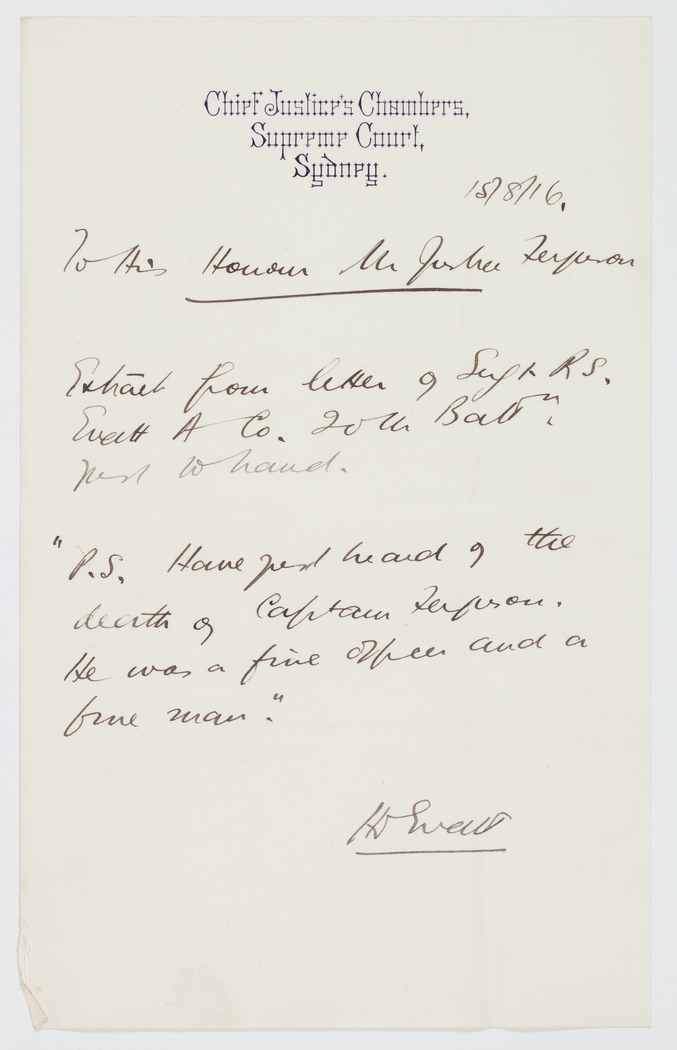 Chief Justice's Chambers,
Supreme Court,
Sydney.
15/8/16.
To His Honour Mr Justice Ferguson
Extract from letter of Sergt R.S.
Evatt A Co. 20th Battn.
just to hand.
"P.S. Have just heard of the
death of Captain Ferguson.
He was a fine officer and a
fine man".
HV Evatt